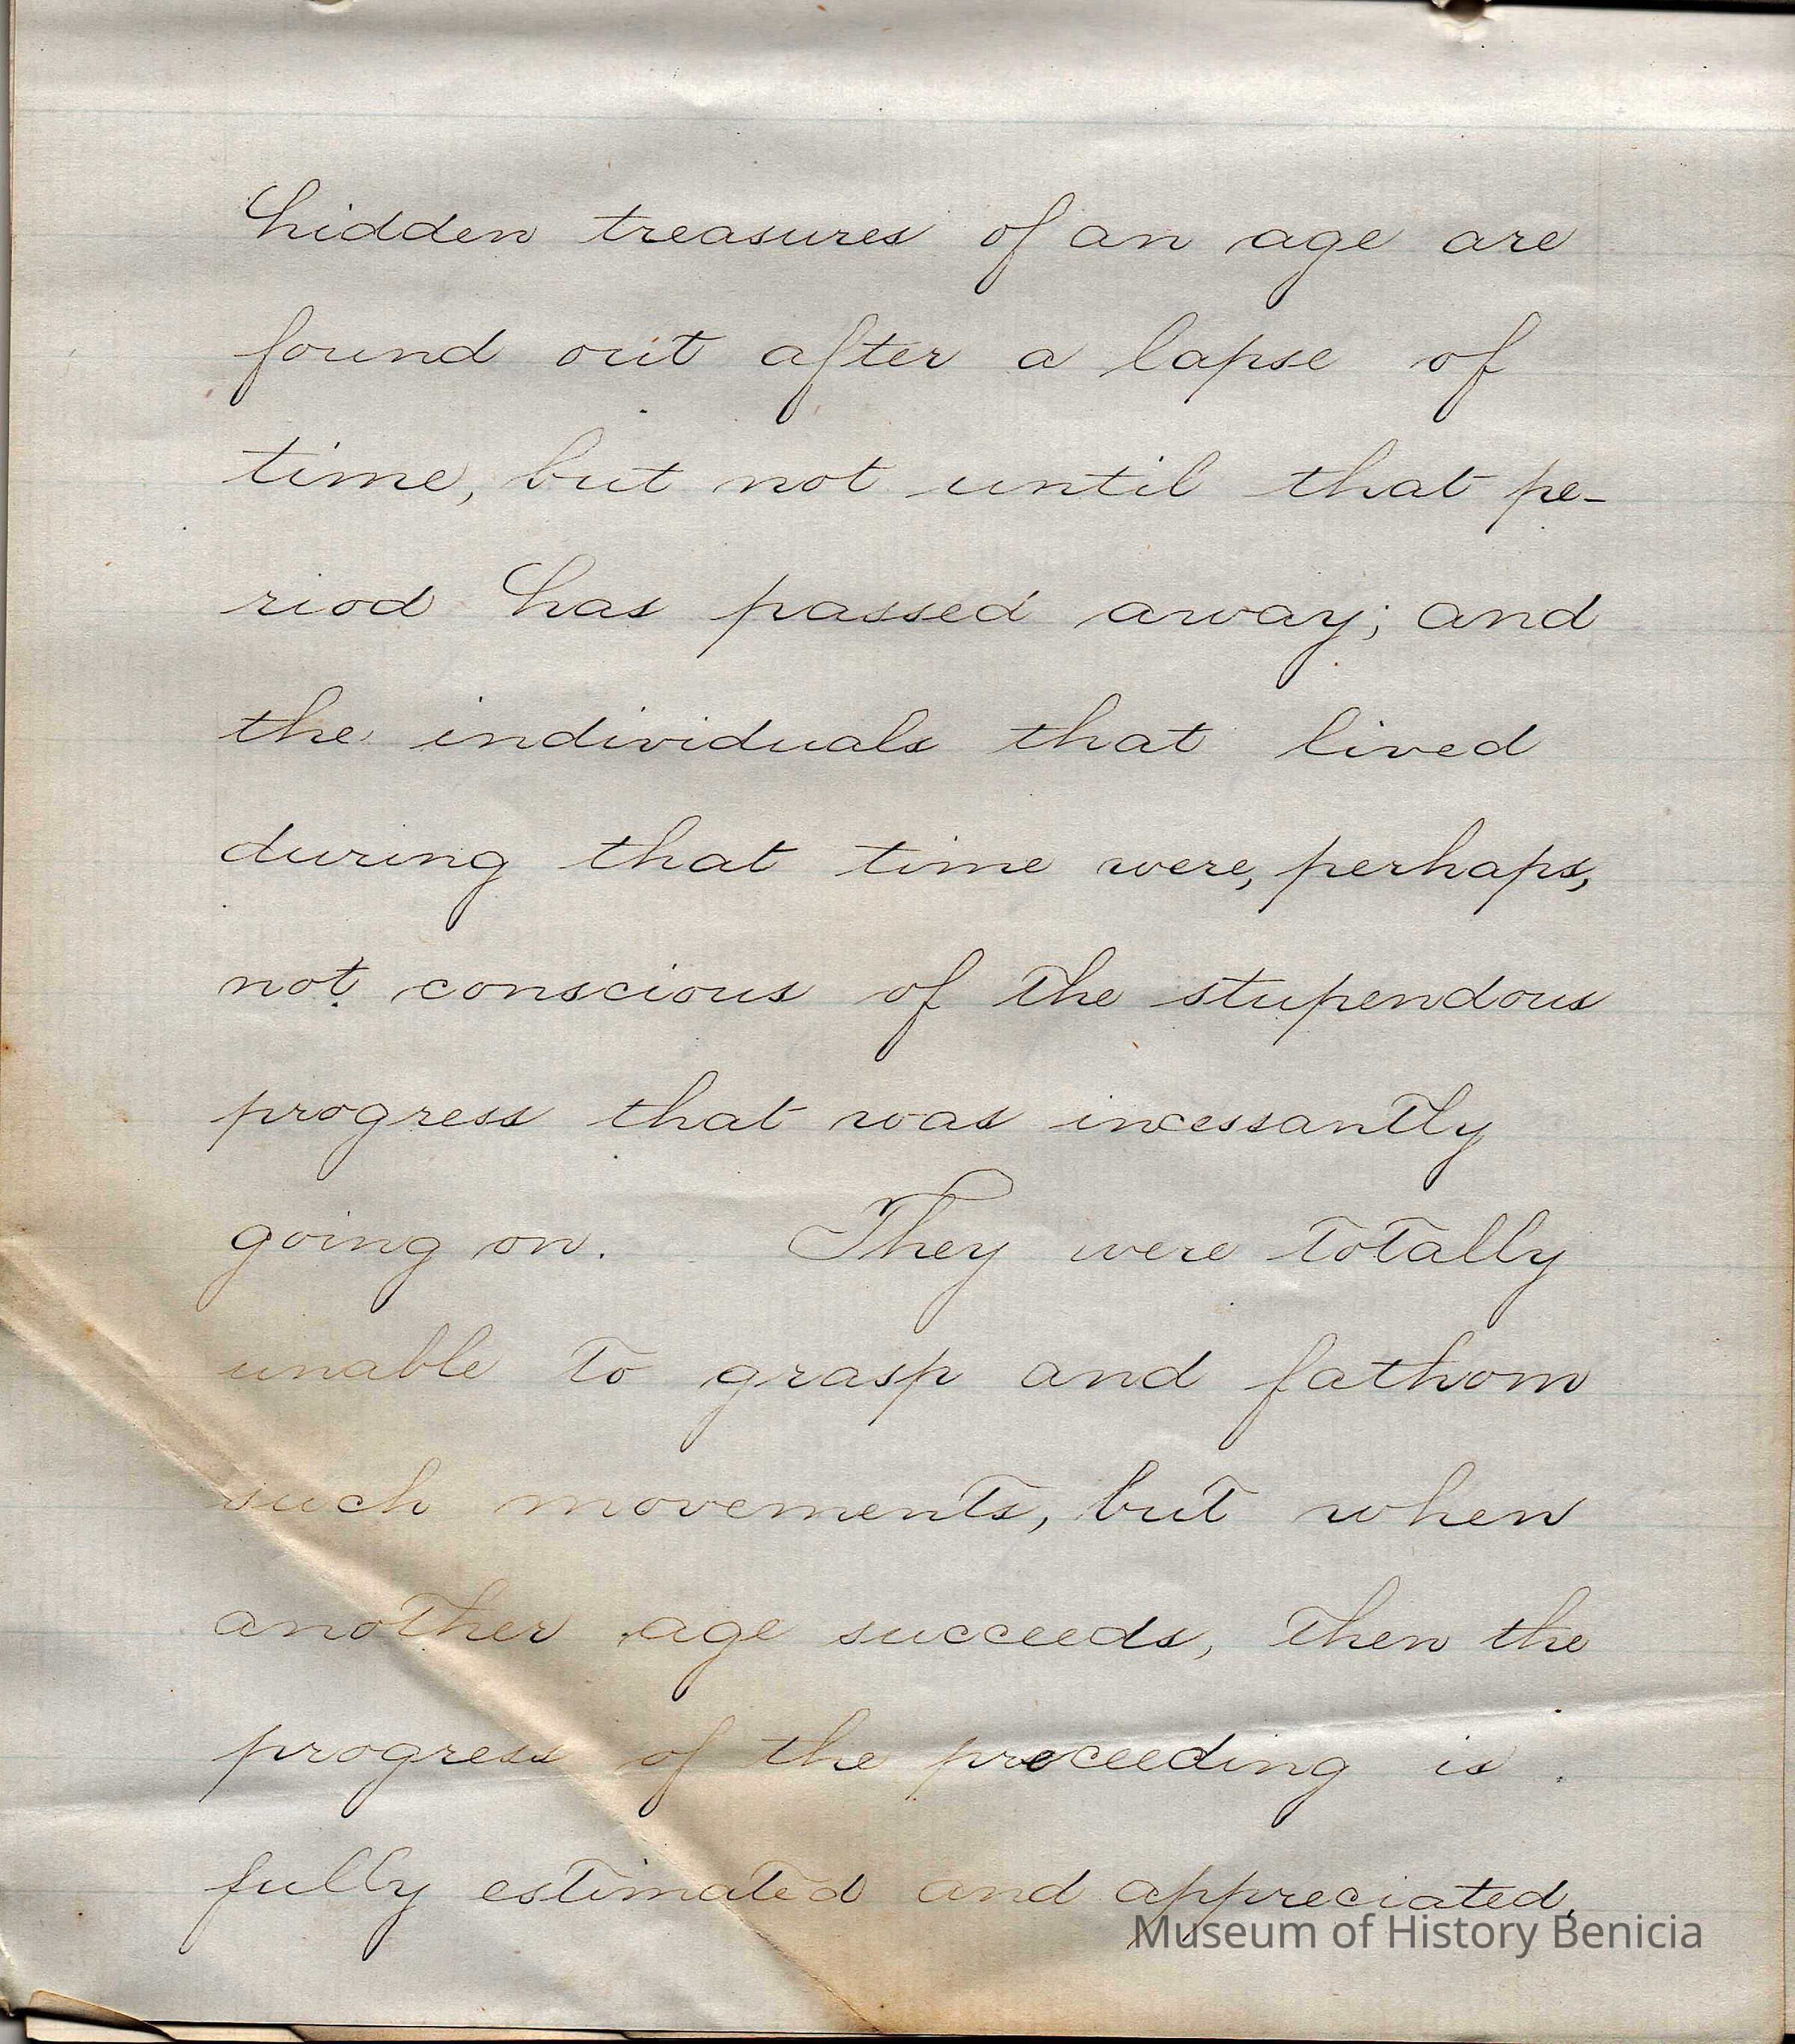 hidden treasures of an age are
found out after a lapse of
time, but not until that pe-
riod has passed away; and
the individuals that lived
during that time were, perhaps,
not conscious of the stupendous
progress that was incessantly
going on. They were totally
unable to grasp and fathom
such movements, but when
another age succeeds, then the
progress of the preceeding is
fully estimated and appreciated,
Museum of History Benicia